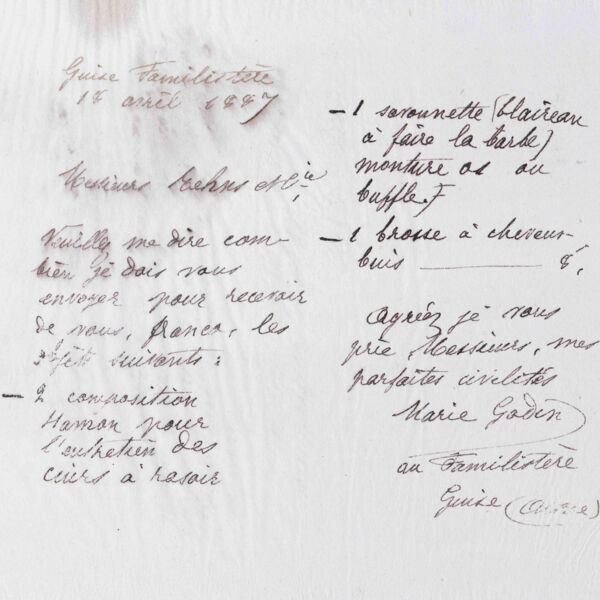 Guise Familistère
18 avril 1887
Messieurs Rehns et Cie,
Veuillez me dire com-
bien je dois vous
envoyer pour recevoir
de vous, franco, les
objets suivants :
– 2 composition
Hamon pour
l'entretien des
cuirs à rasoir
– 1 savonnette (blaireau
à faire la barbe)
monture os ou
buffle.
– 1 brosse à cheveux,
buis — 8,
Agréez je vous
prie, Messieurs, mes
parfaites civilités
Marie Godin
au Familistère
Guise (Aisne)